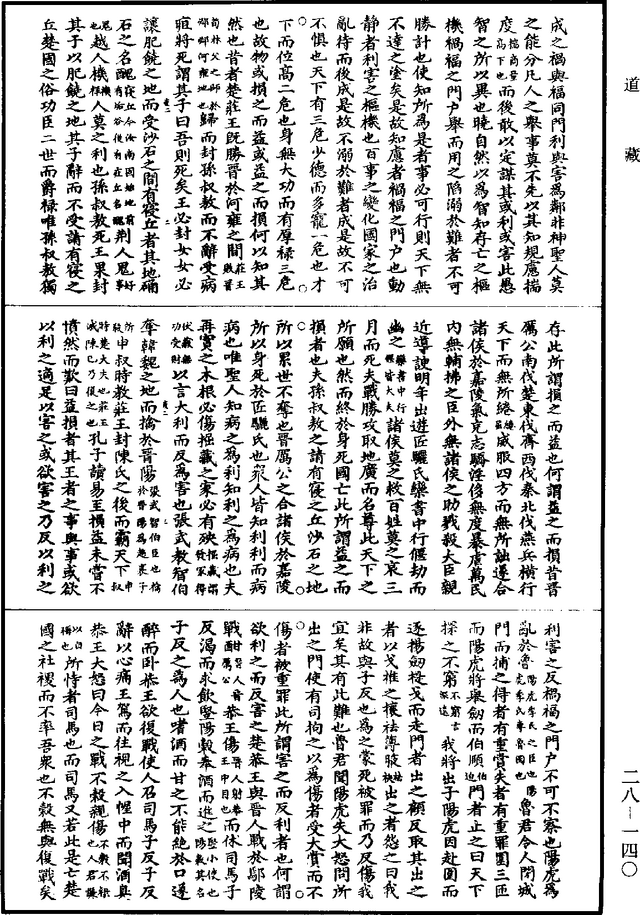 道藏
成之禍與福同門利與害為鄰非神聖人莫
之能分凡人之舉事莫不先以其知規慮揣
度揣商量高下也而後敢以定謀其或利或害此愚
智之所以異也曉自然以為智知存亡之樞
機禍福之門戶舉而用之陷溺於難者不可
勝計也使知所為是者事必可行則天下無
不達之塗矣是故知慮者禍福之門戶也動
靜者利害之樞機也百事之變化國家之治
亂待而後成是故不溺於難者成是故不可
不慎也天下有三危少德而多寵一危也才
下而位高二危也身無大功而有厚祿三危
也故物或損之而益或益之而損何以知其
然也昔者楚莊王既勝晉於河雍之間莊王敗晉
荀林父之師於邲邲河雍地也歸而封孫叔敖而不辭受病
疽將死謂其子曰吾則死矣王必封女女必
讓肥饒之地而受沙石之間有寢丘者其地确
石之名醜寢丘今汝南固始地前有垢谷後有莊丘名醜荆人鬼好鬼
越人機禨祥人莫之利也孫叔敖死王果封
其子以肥饒之地其子辭而不受請有寢之
丘楚國之俗功臣二世而爵祿唯孫叔敖獨
存此所謂損之而益也何謂益之而損昔晉
厲公南伐楚東伐齊西伐秦北伐燕兵橫行
天下而無所綣威服四方而無所詘遂合
諸侯於嘉陵氣充志驕淫侈無度暴虐萬民
內無輔拂之臣外無諸侯之助戮殺大臣親
近導諛明年出遊匠驪氏欒書中行偃劫而
幽之欒書中行偃皆大夫諸侯莫之救百姓莫之哀三
月而死夫戰勝攻取地廣而名尊此天下之
所願也然而終於身死國亡此所謂益之而
損者也夫孫叔敖之請有寢之丘沙石之地
所以累世不奪也晉厲公之合諸侯於嘉陵
所以身死於匠驪氏也眾人皆知利利而病
病也唯聖人知病之為利知利之為病也夫
再實之木根必傷掘藏之家必有殃掘藏謂發冢得
伏藏無功受財以言大利而反為害也張武教智伯
奪韓魏之地而擒於晉陽張武智伯臣也擒於晉陽為趙襄子
所殺申叔時教莊王封陳氏之後而霸天下申叔
時楚大夫也莊王滅陳已乃復之也孔子讀易至損益未嘗不
憤然而歎曰益損者其王者之事與事或欲
以利之適足以害之或欲害之乃反以利之
利害之反禍福之門戶不可不察也陽虎為
亂於魯陽虎季氏之臣也陽虎季氏專魯國也魯君令人閉城
門而捕之得者有重賞失者有重罪圍三匝
而陽虎將舉劒而伯順伯迫門者止之曰天下
探之不窮不窮言深遠我將出子陽虎因赴圍而
逐揚劒提戈而走門者出之顧反取其出之
者以戈推之攘袪薄腋出之者怨之曰我
非故與子反也為之蒙死被罪而乃反傷我
宜矣其有此難也魯君聞陽虎失大怒問所
出之門使有司拘之以為傷者受大賞而不
傷者被重罪此所謂害之而反利者也何謂
欲利之而反害之楚恭王與晉人戰於鄢陵
戰酣晉人晉厲公恭王傷晉人射恭王中目也而休司馬子
反渴而求飲豎陽穀奉酒而進之豎小使也陽穀其名
子反之為人也嗜酒而甘之不能絕於口遂
醉而卧恭王欲復戰使人召司馬子反子反
辭以心痛王駕而往視之入幄中而聞酒臭
恭王大怒曰今日之戰不穀親傷不穀不祿也人君謙
以自稱也所恃者司馬也而司馬又若此是亡楚
國之社稷而不率吾眾也不穀無與復戰矣
二八—一四〇